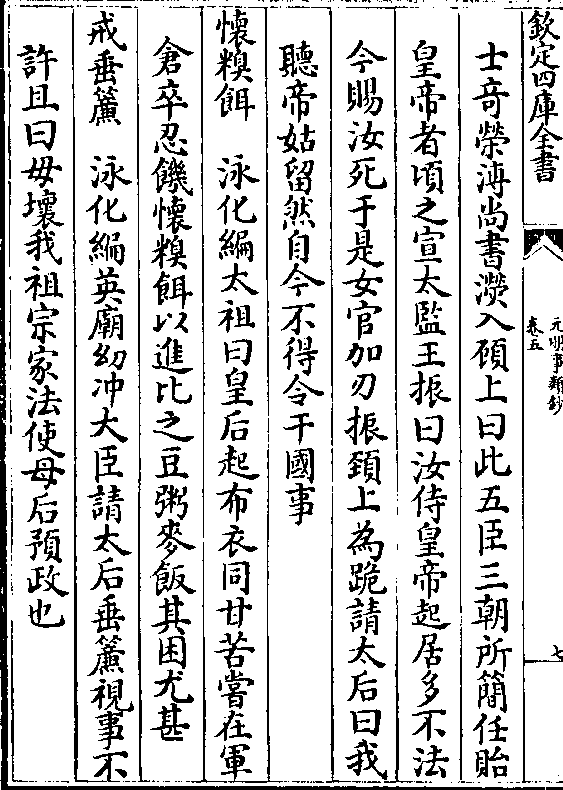 欽定四庫全書
元明事類鈔
卷五
七
士奇榮溥尚書濙入頋上曰此五臣三朝所簡任貽
皇帝者頃之宣太監王振曰汝侍皇帝起居多不法
今賜汝死于是女官加刃振頚上為跪請太后曰我
聽帝姑留然自今不得令干國事
懷糗餌 泳化編太祖曰皇后起布衣同甘苦嘗在軍
倉卒忍饑懷糗餌以進比之豆粥麥飯其困尤甚
戒垂簾 泳化編英廟幼冲大臣請太后垂簾視事不
許且曰毋壞我祖宗家法使母后預政也